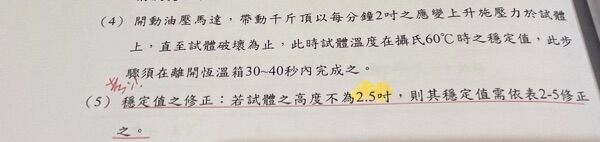 (4) 開動油壓馬達,帶動千斤頂以每分鐘2吋之應變上升施壓力於試體
上,直至試體破壞為止,此時試體溫度在攝氏60℃時之穩定值,此步
驟須在離開恆溫箱30~40秒內完成之。
(5) 穩定值之修正:若試體之高度不為2.5吋,則其穩定值需依表2-5修正
之。